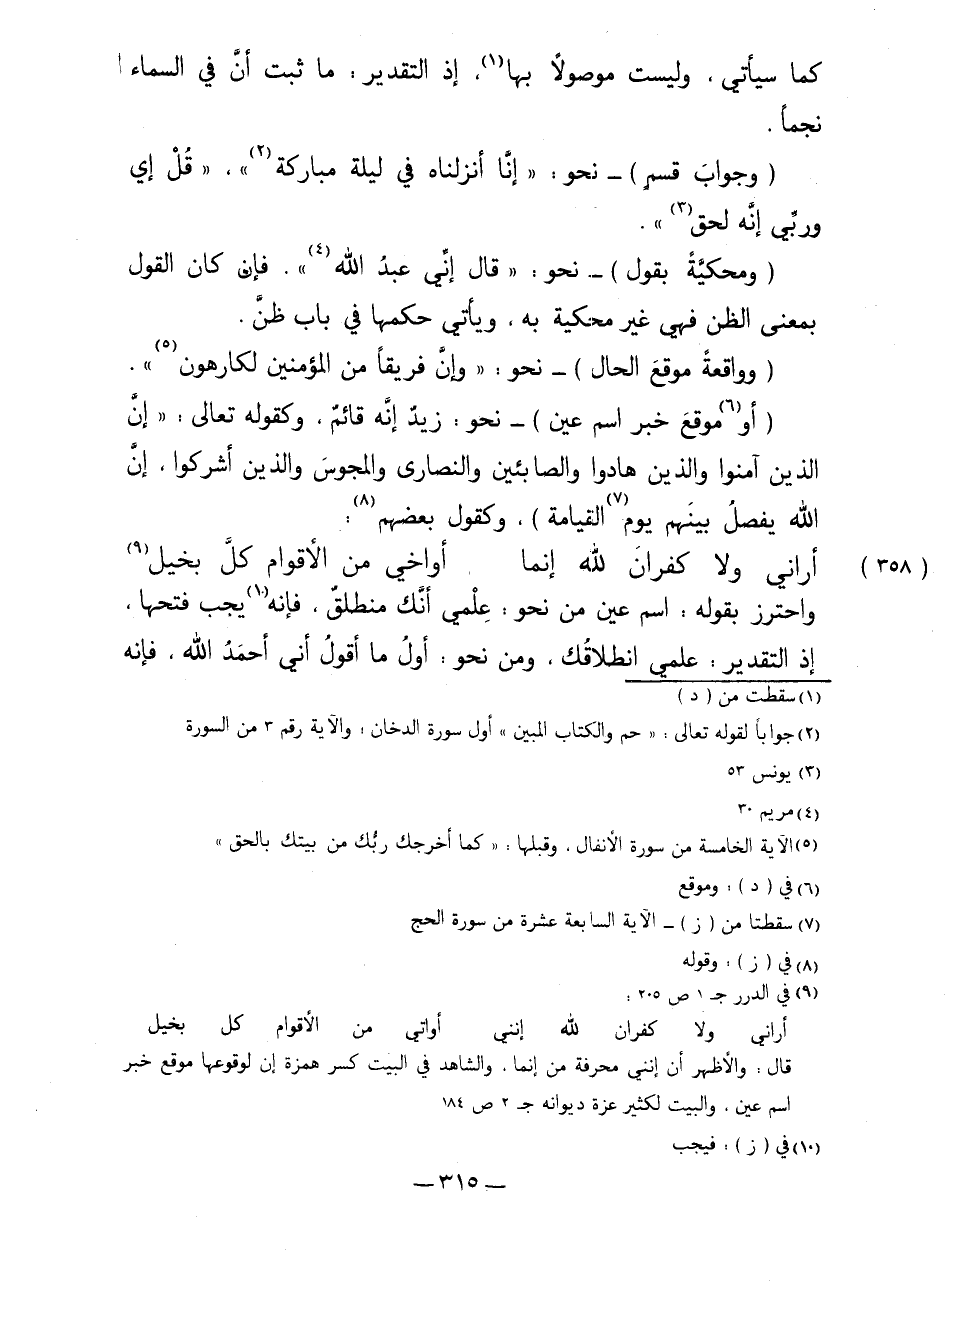 كما سيأتي ، وليست موصولاً بها(١)، إذ التقدير : ما ثبت أنَّ في السماء ا
نجماً .
( وجوابَ قسمٍ ) ــ نحو : « إنَّا أنزلناه في ليلة مباركة(٢)» ، « قُلْ إي
وربِّي إنَّه لحق(٣) » .
( ومحكيَّةً بقول ) ــ نحو : « قال إنِّي عبدُ الله(٤)» . فإن كان القول
بمعنى الظن فهي غير محكية به ، ويأتي حكمها في باب ظنَّ .
( وواقعةً موقعَ الحال ) ــ نحو : « وإنَّ فريقاً من المؤمنين لكارهون(٥)» .
( أو(٦)موقعَ خبر اسم عين ) ــ نحو : زيدٌ إنَّه قائمٌ ، وكقوله تعالى : « إنَّ
الذين آمنوا والذين هادوا والصابئين والنصارى والمجوسَ والذين أشركوا ، إنَّ
الله يفصلُ بينَهم يوم(٧)القيامة ) ، وكقول بعضهم(٨):
أراني ولا كفرانَ لله إنما أواخي من الأقوام كلَّ بخيل(٩) ( ٣٥٨ )
واحترز بقوله : اسم عين من نحو : عِلْمي أنَّك منطلقٌ ، فإنه(١٠)يجب فتحها ،
إذ التقدير : علمي انطلاقُك ، ومن نحو : أولُ ما أقولُ أني أحمَدُ الله ، فإنه
(١) سقطت من ( د )
(٢) جواباً لقوله تعالى : « حم والكتاب المبين » أول سورة الدخان ؛ والآية رقم ٣ من السورة
(٣) يونس ٥٣
(٤) مريم ٣٠
(٥) الآية الخامسة من سورة الأنفال ، وقبلها : « كما أخرجك ربُّك من بيتك بالحق »
(٦) في ( د ) : وموقع
(٧) سقطتا من ( ز ) ــ الآية السابعة عشرة من سورة الحج
(٨) في ( ز ) : وقوله
(٩) في الدرر جـ ١ ص ٢٠٥ :
أراني ولا كفران لله إنني أواتي من الأقوام كل بخيل
قال : والأظهر أن إنني محرفة من إنما ، والشاهد في البيت كسر همزة إن لوقوعها موقع خبر
اسم عين ، والبيت لكثير عزة ديوانه جـ ٢ ص ١٨٤
(١٠) في ( ز ) : فيجب
ــ ٣١٥ ــ